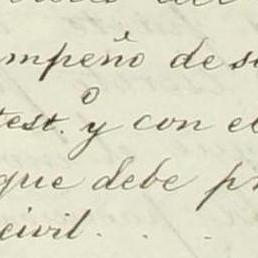 mpeño de su
test.º y con el
que debe pr
civil. . .